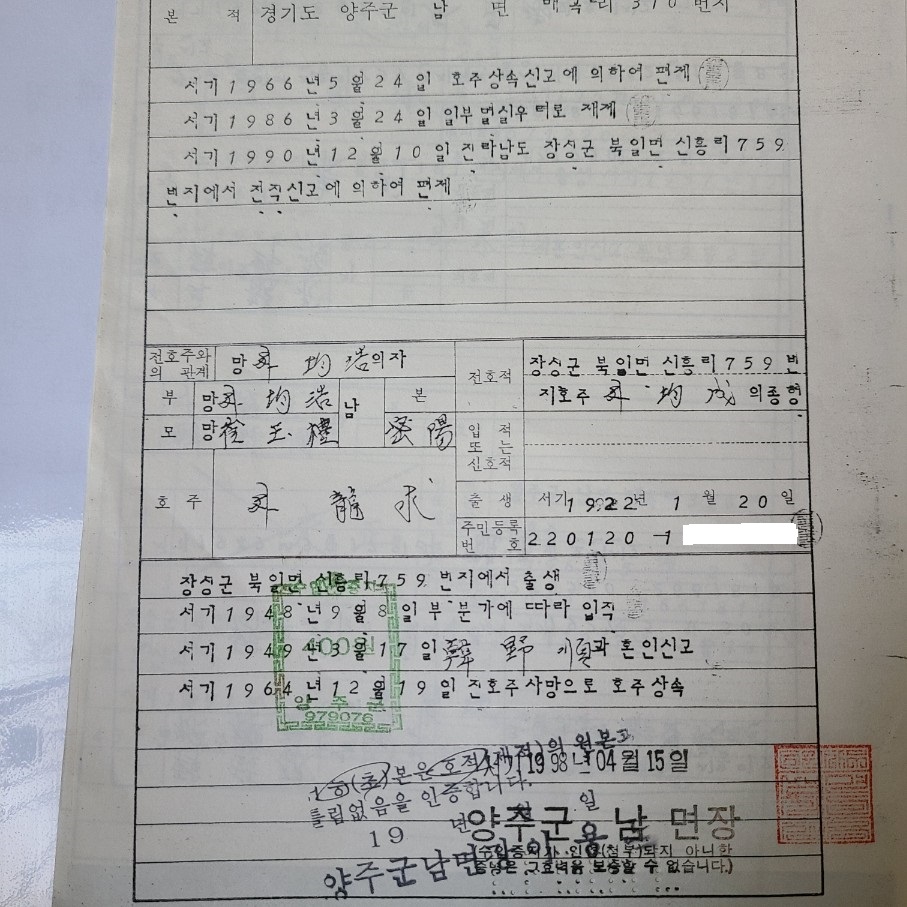 본 적 경기도 양주군 남 면 매곡리 370번지
서기1966년5월24일 호주상속신고에 의하여 편제
서기1986년3월24일 일부멸실우려로 재제
서기1990년12월10일 전라남도 장성군 북일면 신흥리759
번지에서 전적신고에 의하여 편제
전호주와의 관계 망 均浩의자
전호적 장성군 북일면 신흥리759번
지호주 均成의종형
부 망 均浩 남 본
모 망 玉禮 密陽
입적 또는 신호적
호주 龍求
출생 서기1922년 1월 20일
주민등록번호 220120-1
장성군 북일면 신흥리759번지에서 출생
서기1948년9월8일부 분가에 따라 입적
400원
서기1949년3월17일 韓野順과 혼인신고
서기1964년12월19일 전호주사망으로 호주상속
양주군
979076
(초)본은호적(제적)의 원본과
틀림없음을 인증합니다.
서기1998년04월15일
19 년 월 일
양주군 남면장
양주군남면장
(수입증지가 인영(첨부)되지 아니한
증명은 그효력을 보증할 수 없습니다.)